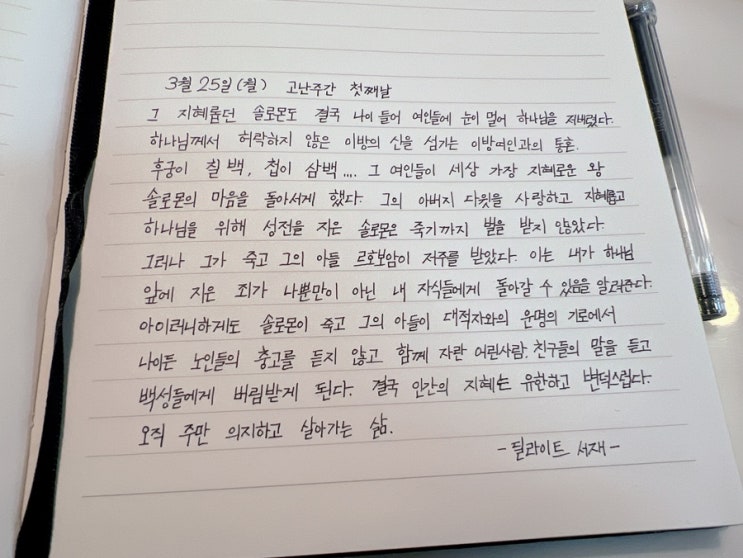 3월 25일 (월) 고난주간 첫째날
그 지혜롭던 솔로몬도 결국 나이 들어 여인들에 눈이 멀어 하나님을 저버렸다.
하나님께서 허락하지 않은 이방의 신을 섬기는 이방여인과의 통혼.
후궁이 칠백, 첩이 삼백.... 그 여인들이 세상 가장 지혜로운 왕
솔로몬의 마음을 돌아서게 했다. 그의 아버지 다윗을 사랑하고 지혜롭고
하나님을 위해 성전을 지은 솔로몬은 죽기까지 벌을 받지 않았다.
그러나 그가 죽고 그의 아들 르호보암이 저주를 받았다. 이는 내가 하나님
앞에 지은 죄가 나뿐만이 아닌 내 자식들에게 돌아갈 수 있음을 알려준다.
아이러니하게도 솔로몬이 죽고 그의 아들이 대적자와의 운명의 기로에서
나이든 노인들의 충고를 듣지 않고 함께 자란 어린사람. 친구들의 말을 듣고
백성들에게 버림받게 된다. 결국 인간의 지혜는 유한하고 변덕스럽다.
오직 주만 의지하고 살아가는 삶.
- 딜라이트 서재 -